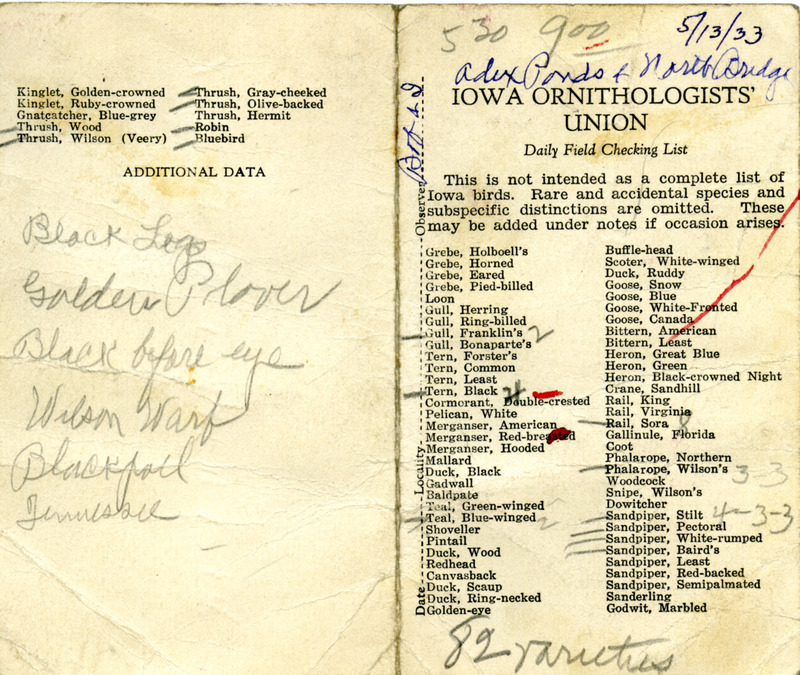 Kinglet, Golden-crowned
Kinglet, Ruby-crowned
Gnatcatcher, Blue-grey
Thrush, Wood
Thrush, Wilson (Veery)
Thrush, Gray-cheeked
Thrush, Olive-backed
Thrush, Hermit
Robin
Bluebird
ADDITIONAL DATA
Black Legs
Golden Plover
Black before eye
Wilson Warb
Blackpoll
Tennessee
530 900
5/13/33
Adex Ponds & North Bridge
IOWA ORNITHOLOGISTS'
UNION
Daily Field Checking List
This is not intended as a complete list of
Iowa birds. Rare and accidental species and
subspecific distinctions are omitted. These
may be added under notes if occasion arises.
Observer
Locality
Date
Grebe, Holboell's
Grebe, Horned
Grebe, Eared
Grebe, Pied-billed
Loon
Gull, Herring
Gull, Ring-billed
Gull, Franklin's 2
Gull, Bonaparte's
Tern, Forster's
Tern, Common
Tern, Least
Tern, Black 4
Cormorant, Double-crested
Pelican, White
Merganser, American
Merganser, Red-breasted
Merganser, Hooded
Mallard
Duck, Black
Gadwall
Baldpate
Teal, Green-winged
Teal, Blue-winged 2
Shoveller
Pintail
Duck, Wood
Redhead
Canvasback
Duck, Scaup
Duck, Ring-necked
Golden-eye
Buffle-head
Scoter, White-winged
Duck, Ruddy
Goose, Snow
Goose, Blue
Goose, White-Fronted
Goose, Canada
Bittern, American
Bittern, Least
Heron, Great Blue
Heron, Green
Heron, Black-crowned Night
Crane, Sandhill
Rail, King
Rail, Virginia
Rail, Sora 8
Gallinule, Florida
Coot
Phalarope, Northern
Phalarope, Wilson's 3-3
Woodcock
Snipe, Wilson's
Dowitcher
Sandpiper, Stilt 4-3-3
Sandpiper, Pectoral
Sandpiper, White-rumped
Sandpiper, Baird's
Sandpiper, Least
Sandpiper, Red-backed
Sandpiper, Semipalmated
Sanderling
Godwit, Marbled
82 varieties